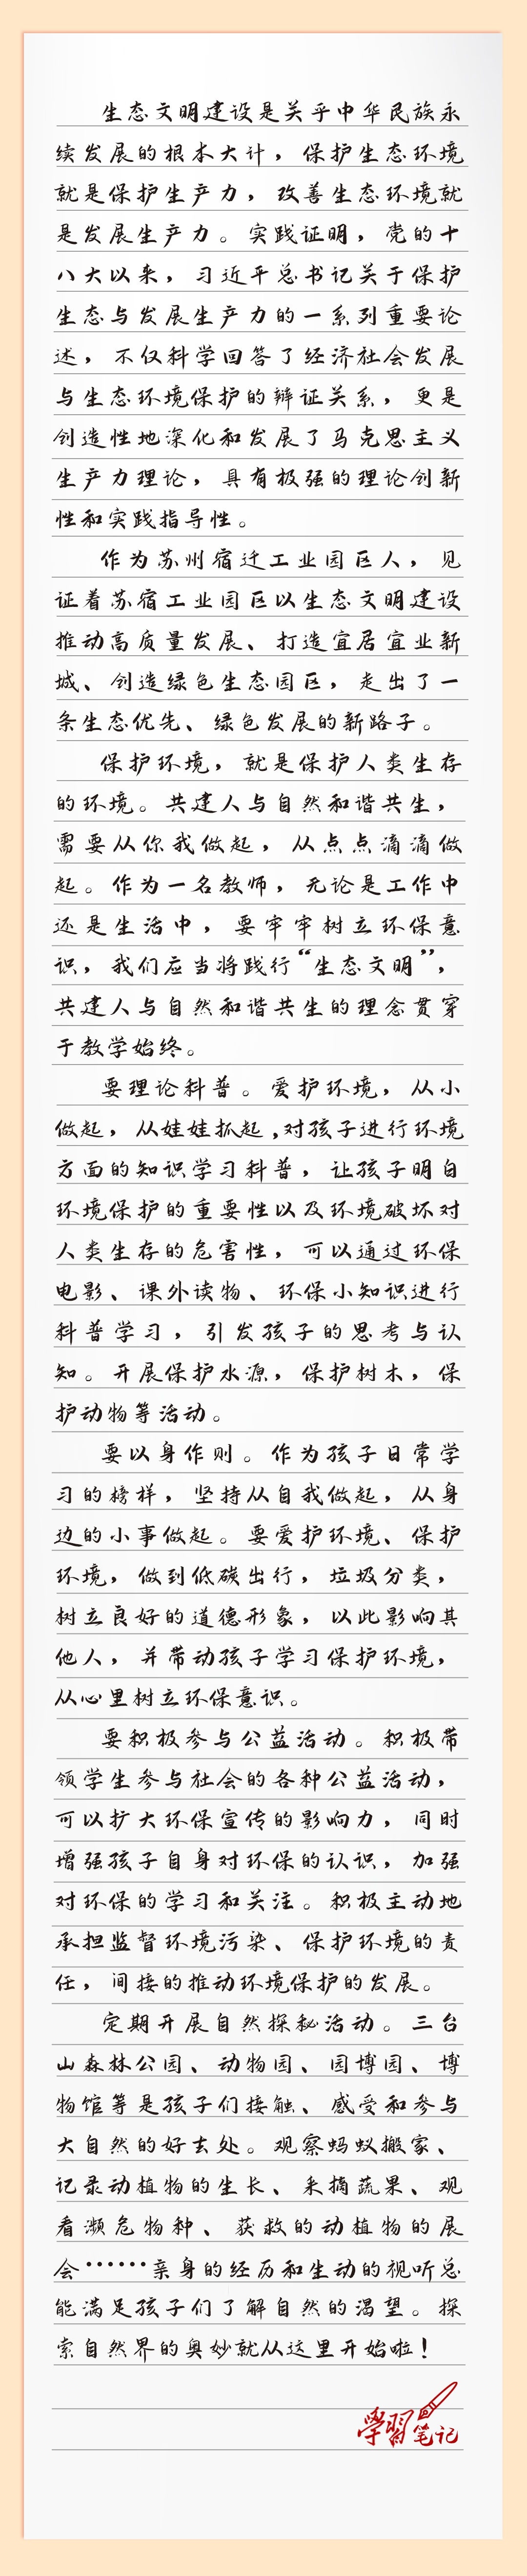 生态文明建设是关乎中华民族永
续发展的根本大计，保护生态环境
就是保护生产力，改善生态环境就
是发展生产力。实践证明，党的十
八大以来，习近平总书记关于保护
生态与发展生产力的一系列重要论
述，不仅科学回答了经济社会发展
与生态环境保护的辩证关系，更是
创造性地深化和发展了马克思主义
生产力理论，具有极强的理论创新
性和实践指导性。
作为苏州宿迁工业园区人，见
证着苏宿工业园区以生态文明建设
推动高质量发展、打造宜居宜业新
城、创造绿色生态园区，走出了一
条生态优先、绿色发展的新路子。
保护环境，就是保护人类生存
的环境。共建人与自然和谐共生，
需要从你我做起，从点点滴滴做
起。作为一名教师，无论是工作中
还是生活中，要牢牢树立环保意
识，我们应当将践行“生态文明”，
共建人与自然和谐共生的理念贯穿
于教学始终。
要理论科普。爱护环境，从小
做起，从娃娃抓起,对孩子进行环境
方面的知识学习科普，让孩子明白
环境保护的重要性以及环境破坏对
人类生存的危害性，可以通过环保
电影、课外读物、环保小知识进行
科普学习，引发孩子的思考与认
知。开展保护水源，保护树木，保
护动物等活动。
要以身作则。作为孩子日常学
习的榜样，坚持从自我做起，从身
边的小事做起。要爱护环境、保护
环境，做到低碳出行，垃圾分类，
树立良好的道德形象，以此影响其
他人，并带动孩子学习保护环境，
从心里树立环保意识。
要积极参与公益活动。积极带
领学生参与社会的各种公益活动，
可以扩大环保宣传的影响力，同时
增强孩子自身对环保的认识，加强
对环保的学习和关注。积极主动地
承担监督环境污染、保护环境的责
任，间接的推动环境保护的发展。
定期开展自然探秘活动。三台
山森林公园、动物园、园博园、博
物馆等是孩子们接触、感受和参与
大自然的好去处。观察蚂蚁搬家、
记录动植物的生长、采摘蔬果、观
看濒危物种、获救的动植物的展
会……亲身的经历和生动的视听总
能满足孩子们了解自然的渴望。探
索自然界的奥妙就从这里开始啦！
學習笔记